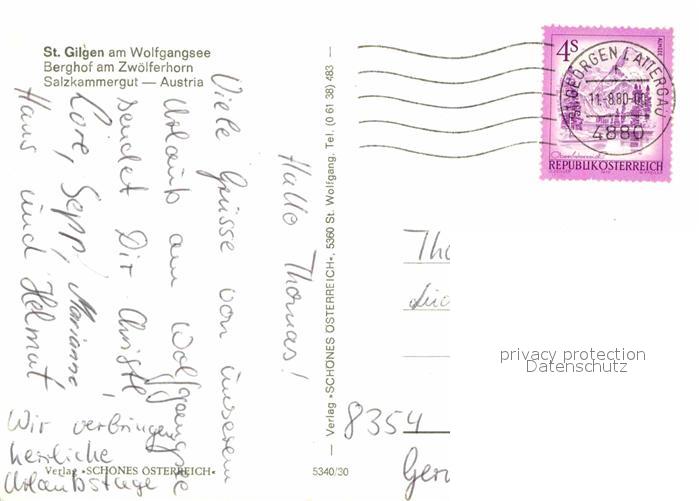 St. Gilgen am Wolfgangsee
Berghof am Zwölferhorn
Salzkammergut — Austria
Hallo Thomas!
Viele Grüsse von unserem
Urlaub am Wolfgangsee
sendet Dir Christl
Lore, Sepp, Marianne,
Hans und Helmut
Wir verbringen
herrliche
Urlaubstage
Verlag »SCHÖNES ÖSTERREICH«
5340/30
— Verlag »SCHÖNES ÖSTERREICH«, 5360 St. Wolfgang, Tel. (0 61 38) 483 —
4S
ALMSEE
Oberösterreich
REPUBLIK ÖSTERREICH
ST. GEORGEN I. ATTERGAU
11.-8.80-
4880
Tho
8354
privacy protection
Datenschutz